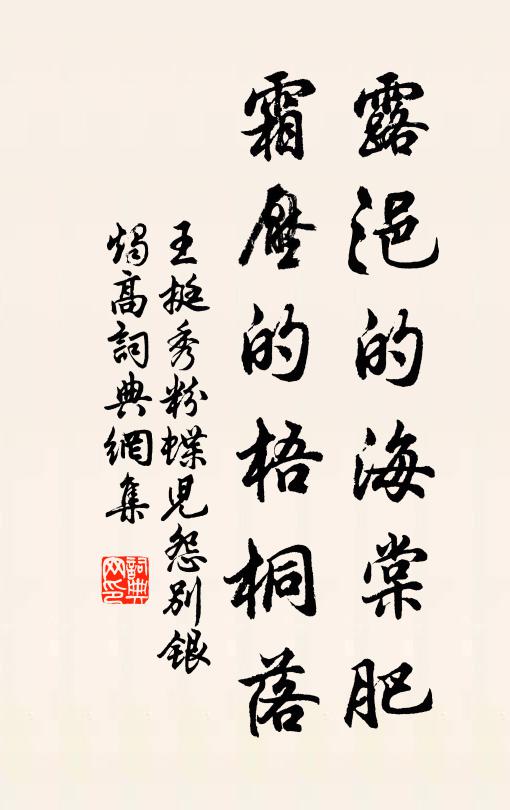 露浥的海棠肥
霜壓的梧桐落
王挺秀粉蝶兒怨别銀
燭高詞典網集
詞典网印